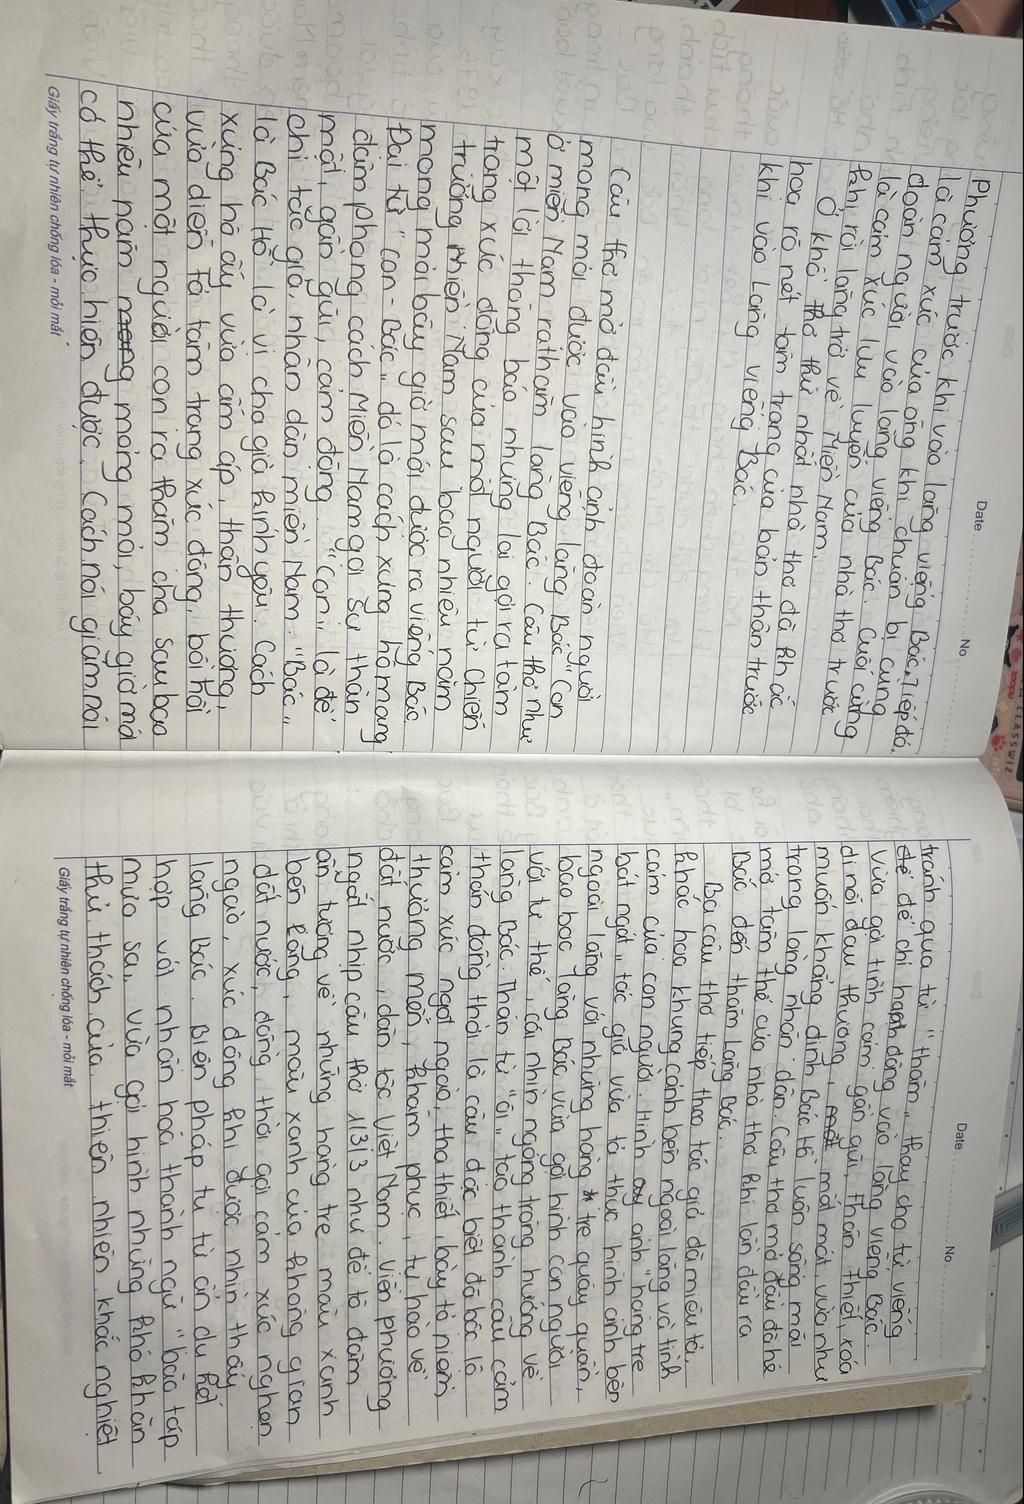 Date No
Phương trước khi vào lăng viếng Bác. Tiếp đó,
là cảm xúc của ông khi chuẩn bị cùng
đoàn người vào lăng viếng Bác. Cuối cùng
là cảm xúc lưu luyến của nhà thơ trước
khi rời lăng trở về Miền Nam.
Ở khổ thơ thứ nhất nhà thơ đã khắc
họa rõ nét tâm trạng của bản thân trước
khi vào lăng viếng Bác.
Câu thơ mở đầu hình ảnh đoàn người
mong mỏi được vào viếng lăng Bác "Con
ở miền Nam ra thăm lăng Bác. Câu thơ như
một lời thông báo nhưng lại gợi ra tâm
trạng xúc động của một người từ chiến
trường Miền Nam sau bao nhiêu năm
mong mỏi bây giờ mới được ra viếng Bác.
Đại từ "con - Bác" đó là cách xưng hô mang
đậm phong cách Miền Nam gợi sự thân
mật, gần gũi, cảm động. "Con" là để
chỉ tác giả, nhân dân miền Nam. "Bác"
là Bác Hồ là vị cha già kính yêu. Cách
xưng hô ấy vừa ấm áp, thân thương,
vừa diễn tả tâm trạng xúc động, bồi hồi
của một người con ra thăm cha sau bao
nhiêu năm mong mỏi, bây giờ mới
có thể thực hiện được. Cách nói giảm nói
Giấy trắng tự nhiên chống lóa - mỏi mắt
Date No
tránh qua từ "thăm" thay cho từ viếng
để để chỉ hành động vào lăng viếng Bác.
Vừa gợi tình cảm gần gũi, thân thiết, xoá
đi nỗi đau thương, mất mát, vừa như
muốn khẳng định Bác Hồ luôn sống mãi
trong lòng nhân dân. Câu thơ mở đầu đã hé
mở tâm thế của nhà thơ khi lần đầu ra
Bắc đến thăm lăng Bác.
Ba câu thơ tiếp theo tác giả đã miêu tả,
khắc hoạ khung cảnh bên ngoài lăng và tình
cảm của con người. Hình ảnh "hàng tre
bát ngát" tác giả vừa tả thực hình ảnh bên
ngoài lăng với những hàng tre quây quần,
bao bọc lăng Bác vừa gợi hình con người
với tư thế, cái nhìn ngóng trông hướng về
lăng Bác. Thán từ "ôi" tạo thành câu cảm
thán đồng thời là câu đặc biệt đã bộc lộ
cảm xúc ngợi ngào, tha thiết, bày tỏ niềm
thương mến, khâm phục, tự hào về
đất nước, dân tộc Việt Nam. Viễn phương
ngắt nhịp câu thơ 1/3/3 như để tô đậm
ấn tượng về những hàng tre màu xanh
bên lăng, màu xanh của không gian
đất nước, đồng thời gợi cảm xúc nghẹn
ngào, xúc động khi được nhìn thấy
lăng Bác. Biện pháp tu từ ẩn dụ kết
hợp với nhân hoá thành ngữ "bão táp
mưa sa" vừa gợi hình những khó khăn
thử thách của thiên nhiên khắc nghiệt
Giấy trắng tự nhiên chống lóa - mỏi mắt